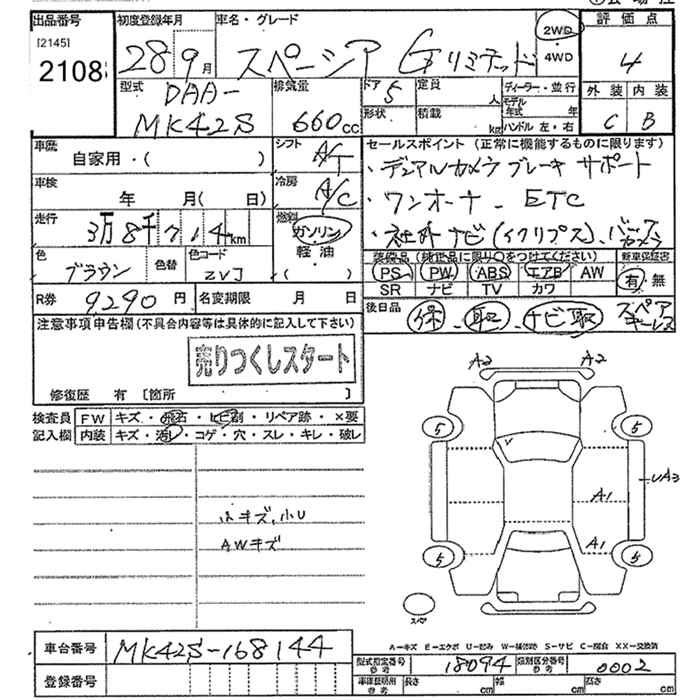 出品番号 初度登録年月 車名・グレード 2WD 評価点
[2145] 28 9月 スペーシア Gリミテッド 4WD 4
2108 型式 DAA- 排気量 ドア 5 定員 人 ディーラー・並行 外装 内装
MK42S 660cc 形状 積載 kg モデル年式 年 ハンドル 左・右 C B
車歴 自家用・( ) シフト A/T セールスポイント (正常に機能するものに限ります)
・デュアルカメラブレーキサポート
車検 年 月( 日) 冷房 A/C ・ワンオーナー ETC
走行 3万8千714km 燃料 ガソリン ・社外ナビ(イクリプス)、バックカメラ
色 ブラウン 色替 色コード ZVJ 軽油 ( ) 装備品 (純正品に限り○をつけてください) 新車保証書
PS PW ABS エアB AW 有・無
SR ナビ TV カワ
R券 9,290円 名変期限 月 日 後日品 保、取、ナビ取 スペアキーレス
注意事項申告欄(不具合内容等は具体的に記入して下さい)
売りつくしスタート
修復歴 有 [箇所 ]
検査員 FW キズ・飛石・ヒビ割・リペア跡・×要
記入欄 内装 キズ・汚レ・コゲ・穴・スレ・キレ・破レ
A2 A2
5 5
UA3
A1
A1
5 5
小キズ、小U
AWキズ
スペア
車台番号 MK42S-168144
A-キズ E-エクボ U-凹み W-補修跡 S-サビ C-腐食 XX-交換済
型式指定番号 参考 18094 類別区分番号 参考 0002
登録番号 車庫証明用 参考 長さ cm 幅 cm 高さ cm